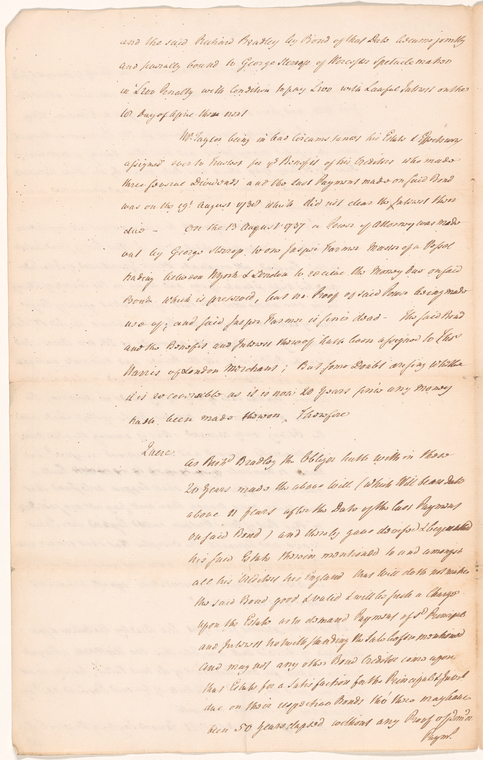 and the said Richard Bradley by Bond of that Date became joyntly
and severally bound to George Stenop of spectaclemaker
in £200 Penalty with Condition to pay £100 with Lawful Interest on the
10 Day of Aprl then next
Mr. Taylor being in bad Circumstances his Estate & Effects were
assigned over to Trustees for ye Benefit of his Creditors who made
three several Dividends and the Last Payment made on said Bond
was on the 19th August 1738 which did not clear the Interest then
due – On the 13 August 1737 a Power of Attorney was made
out by George Stenop to one Jasper Farmer Master of a Vessel
trading between NYork & London to receive the Money due on said
Bond which is preserved, but no Proof of said Power being made
use of; and said Jasper Farmer is since dead – The said Bond
and the Benefit and Interest thereof hath been assigned to
Harris of London Merchant; But some Doubt arising whether
it is recoverable as it is now 20 Years since any Money
hath been made thereon, Therefore
Quere.
As Richd Bradley the Obligor hath within those
20 Years made the above Will (which Will bears Date
above 11 Years after the Date of the last Payment
on said Bond) and thereby gave devised & bequeathed
his said Estate therein mentioned to and amongst
all his England that Will doth not make
the said Bond good & valid & will be such a Charge
upon the Estate as to demand Payment of sd Principal
and Interest notwithstanding the Sale after mentioned
And may not any other Bond Creditor come upon
that Estate for a Satisfaction for the Principal & Interest
due on their respective Bonds tho' there may have
been 50 Years elapsed without any Proof of
Paymt.